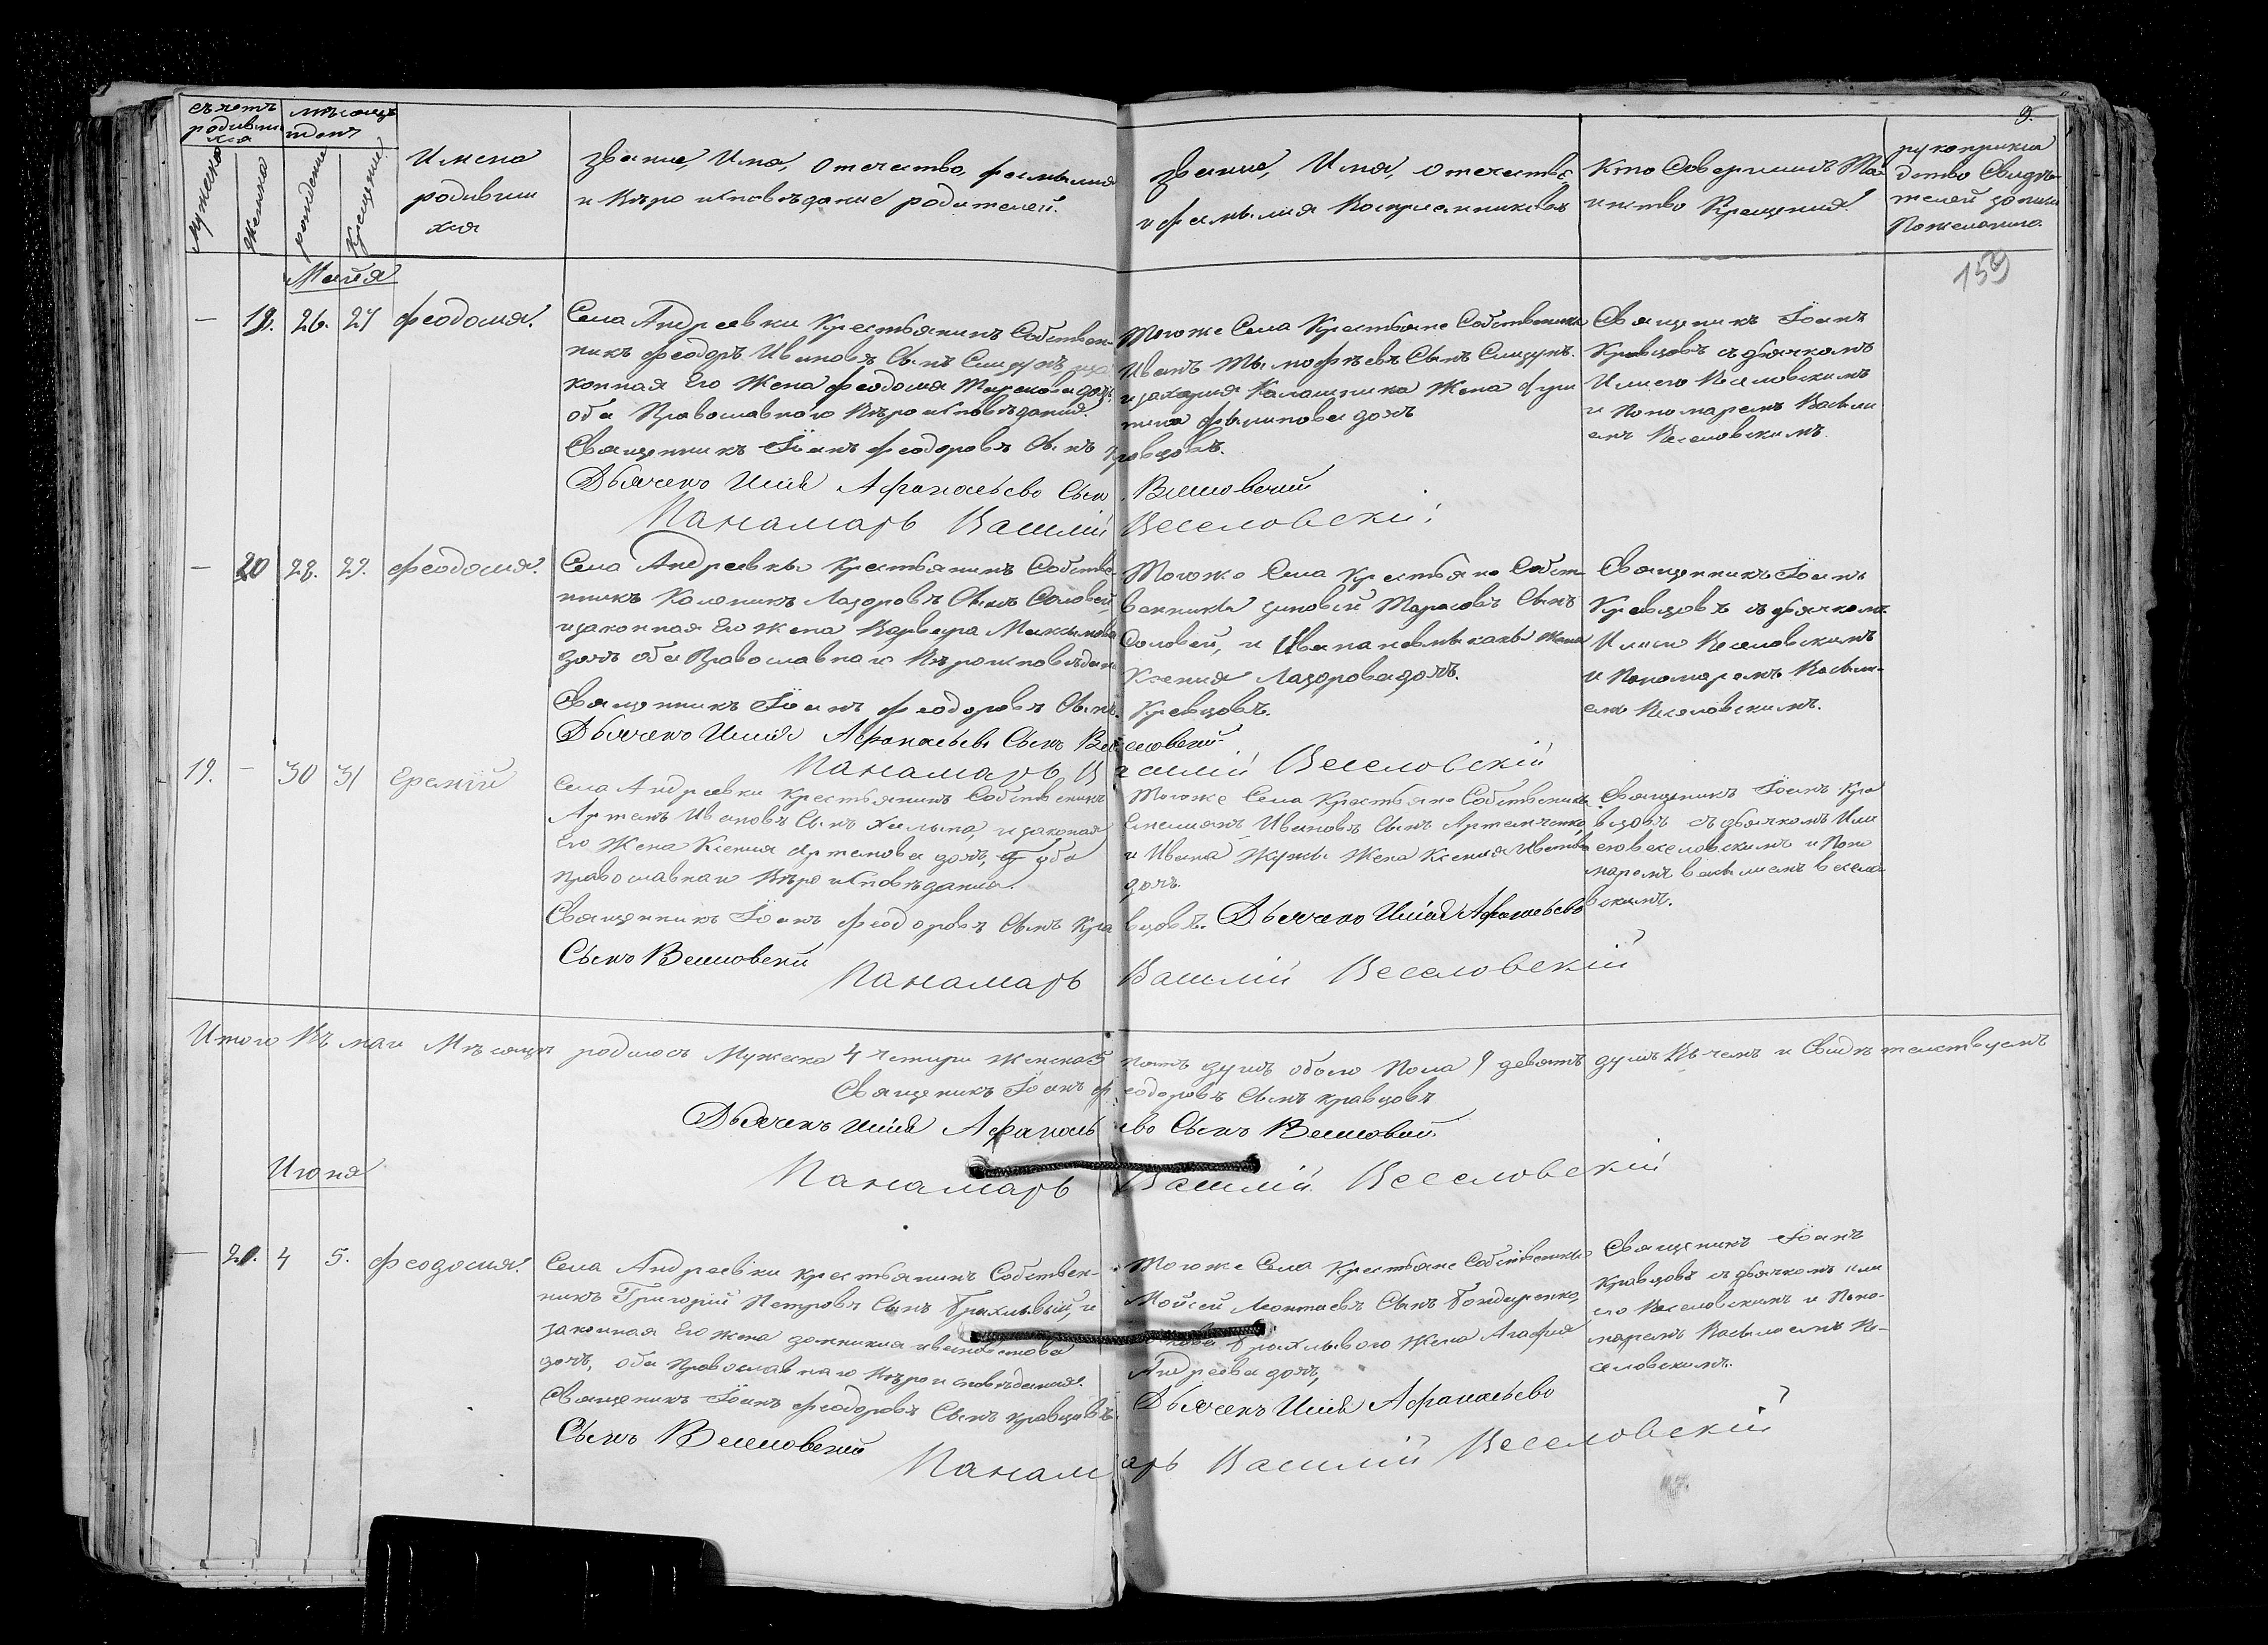 9.
счетъ родивши хся
мѣсяцъ и день
Мужеска
Женска
рожденія
Крещенія
Имена
родивши
хся
Званіе, Имя, Отечество, фамилія
и Вѣроисповѣданіе родителей.
Званіе, Имя, Отечество
и фамилія Воспріемниковъ
Кто Совершилъ Та-
инство Крещенія.
рукоприкла
дство Свидѣ-
телей записи
По желанію.
159
Маія
— 19. 26. 27 Феодосія.
Села Андреевки Крестьянинъ Собствен-
никъ Феодоръ Ивановъ Сынъ
конная Его Жена Феодосія дочь
оба Православнаго Вѣроисповѣданія.
Священникъ Іоанъ Феодоровъ Сынъ Кравцовъ.
Дьячекъ Илія Афанасьевъ Сынъ Веселовскій
Панамарь Василій Веселовскій
Тогоже Села Крестьяне Собственники
Иванъ Тымофѣевъ Сынъ
и Захарія Калашника Жена
Филипова дочь
Священикъ Іоанъ
Кравцовъ съ дьячкомъ
Иліею Веселовскимъ
и Пономаремъ Васыли
емъ Веселовскимъ.
— 20 28. 29. Феодосія.
Села Андреевки Крестьянинъ Собствен-
никъ Калиникъ Лазоровъ Сынъ Соловей
и законная Его жена Варвара Максимова
дочь оба Православнаго Вѣроисповѣдан
Священникъ Іоанъ Феодоровъ Сынъ Кравцовъ.
Дьячекъ Илія Афанасьевъ Сынъ Веселовскій
Панамарь Василій Веселовскій
Тогоже Села Крестьяне Собст-
венники Зиновій Тарасовъ Сынъ
Соловей, и Ивана жена
Ксенія Лазорова дочь.
Священникъ Іоанъ
Кравцовъ съ дьячкомъ
Иліею Веселовскимъ
и Пономаремъ Васыли-
емъ Веселовскимъ.
19. — 30 31 Еремій
Села Андреевки Крестьянинъ Собственикъ
Артемъ Ивановъ Сынъ и законая
Его Жена Ксенія Артемова дочь, оба
Православнаго Вѣроисповѣданія.
Священникъ Іоанъ Феодоровъ Сынъ Кравцовъ. Дьячекъ Илія Афанасьевъ
Сынъ Веселовскій
Панамарь Василій Веселовскій
Тогоже Села Крестьяне Собственики
Емелианъ Ивановъ Сынъ Артемченко,
и Ивана Жужы Жена Ксенія Иванова
дочь.
Священикъ Іоанъ Кра
вцовъ съ дьячкомъ Или
ею веселовскимъ и Поно
маремъ васылиемъ весело
вскимъ.
Итого Въ маи Мѣсяцѣ родилось Мужеска 4 четыри Женска 5 пять душъ обоего Пола 9 девять душъ Въ чемъ и Свидѣтелствуемъ
Священикъ Іоанъ Феодоровъ Сынъ кравцовъ
Дьячекъ Илія Афанасьевъ Сынъ Веселовскій
Панамарь Василій Веселовскій
Июня
— 21. 4 5. Феодосія.
Села Андреевки крестьянинъ Собствен-
никъ Григорій Петровъ Сынъ Брихлывый, и
законная Его жена домникия
дочь, оба Православнаго Вѣроисповѣданія.
Священикъ Іоанъ Феодоровъ Сынъ кравцовъ
Дьячекъ Илія Афанасьевъ
Сынъ Веселовскій
Панамарь Василій Веселовскій
Тогоже Села Крестьяне Собственики
Мойсей Леонтиевъ Сынъ Бондаренко,
Брихлывого Жена Агафия
Андреева дочь,
Священикъ Іоанъ
Кравцовъ съ дьячкомъ или
ею Веселовскимъ и Поно-
маремъ Васылиемъ Ве-
селовскимъ.